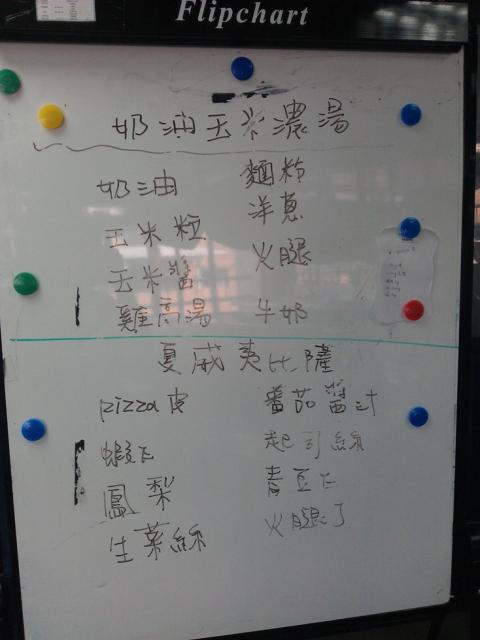 Flipchart
奶油玉米濃湯
奶油
麵粉
玉米粒
洋蔥
玉米醬
火腿
雞高湯
牛奶
夏威夷比薩
pizza皮
番茄醬汁
蝦仁
起司絲
鳳梨
青豆仁
生菜絲
火腿丁